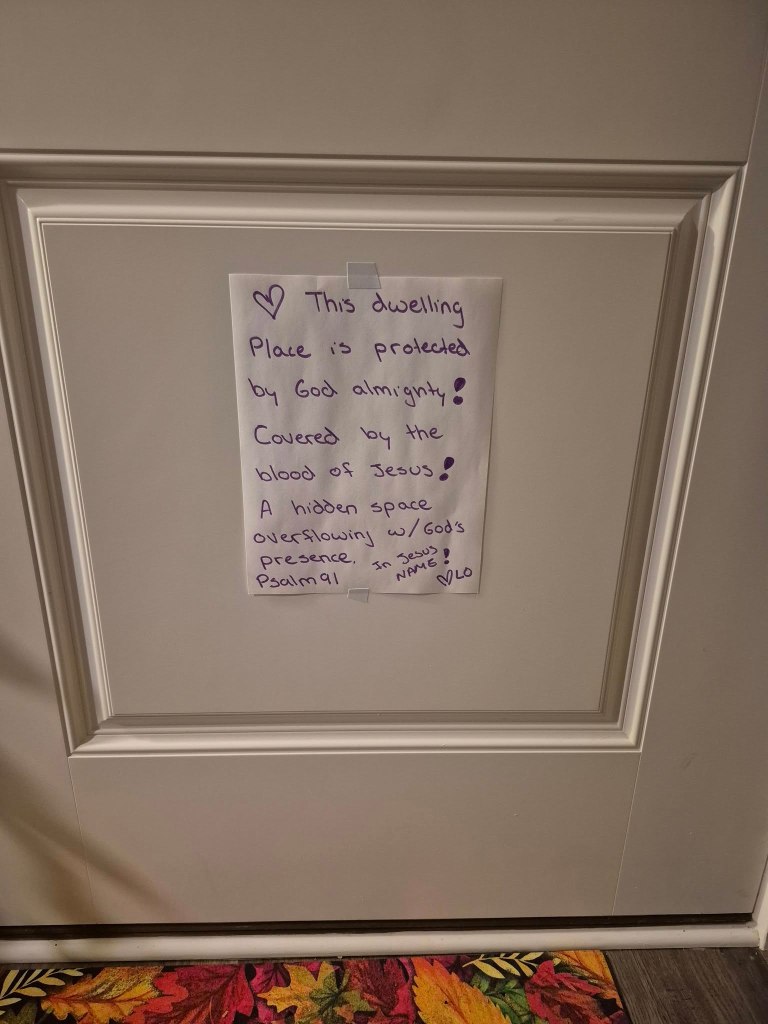 ♡ This dwelling
Place is protected
by God almighty!
Covered by the
blood of Jesus!
A hidden space
overflowing w/God's
presence. In Jesus
Psalm 91 NAME!
♡LO